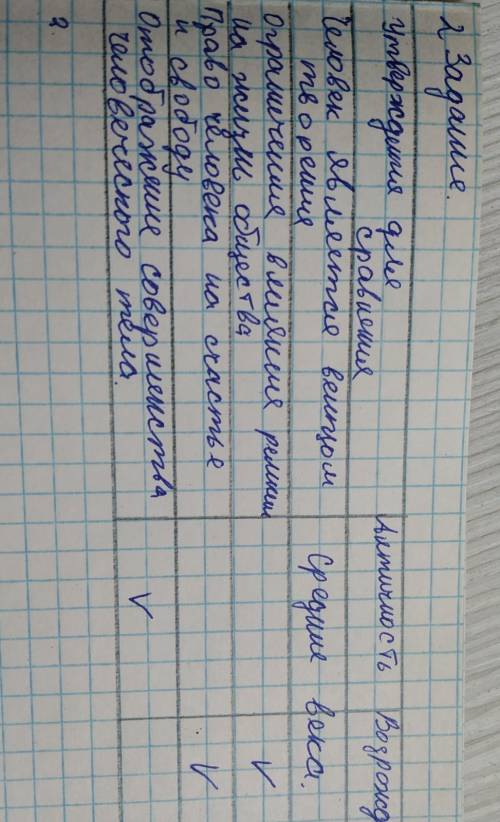 2 Задание.
Утверждения для сравнения
Античность
Возрожд
Человек является венцом
творения
Средние века.
Ограничения влияния религии
на жизнь общества
V
Право человека на счастье
и свободу
V
Отображение совершенства
человеческого тела.
V